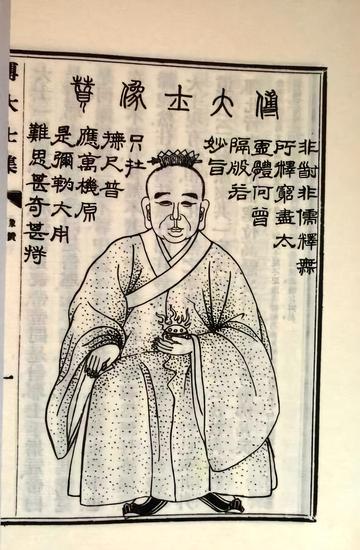 傅大士像贊
非非儒釋無
所釋窮盡太
體何曾
隔般若
妙旨
只
撫尺普
應萬機原
是彌勒大用
難思甚奇甚特
傅大士集
像贊
一